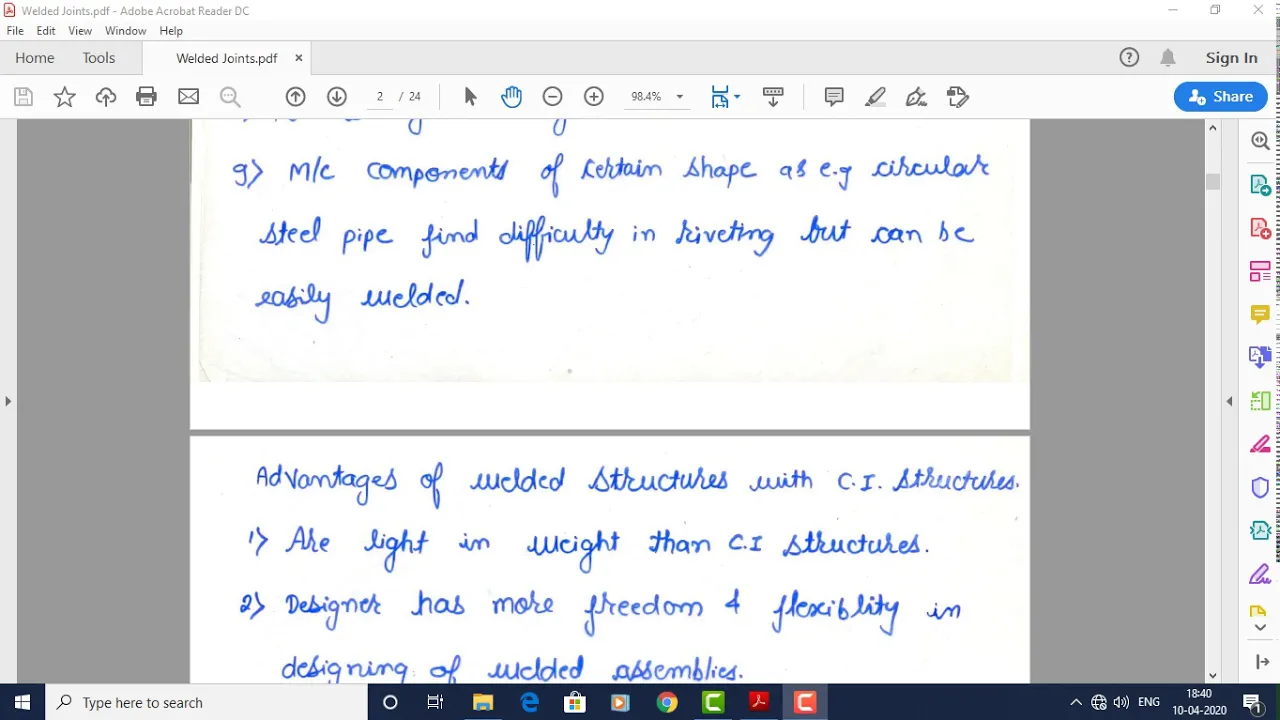 Welded Joints.pdf - Adobe Acrobat Reader DC
File Edit View Window Help
Home Tools Welded Joints.pdf × Sign In
2 / 24 98.4% Share
9> M/C components of certain shape as e.g circular
steel pipe find difficulty in riveting but can be
easily welded.
Advantages of welded structures with C.I. structures.
1> Are light in weight than C.I structures.
2> Designer has more freedom & flexiblity in
designing of welded assemblies.
Type here to search
ENG 18:40
10-04-2020 1